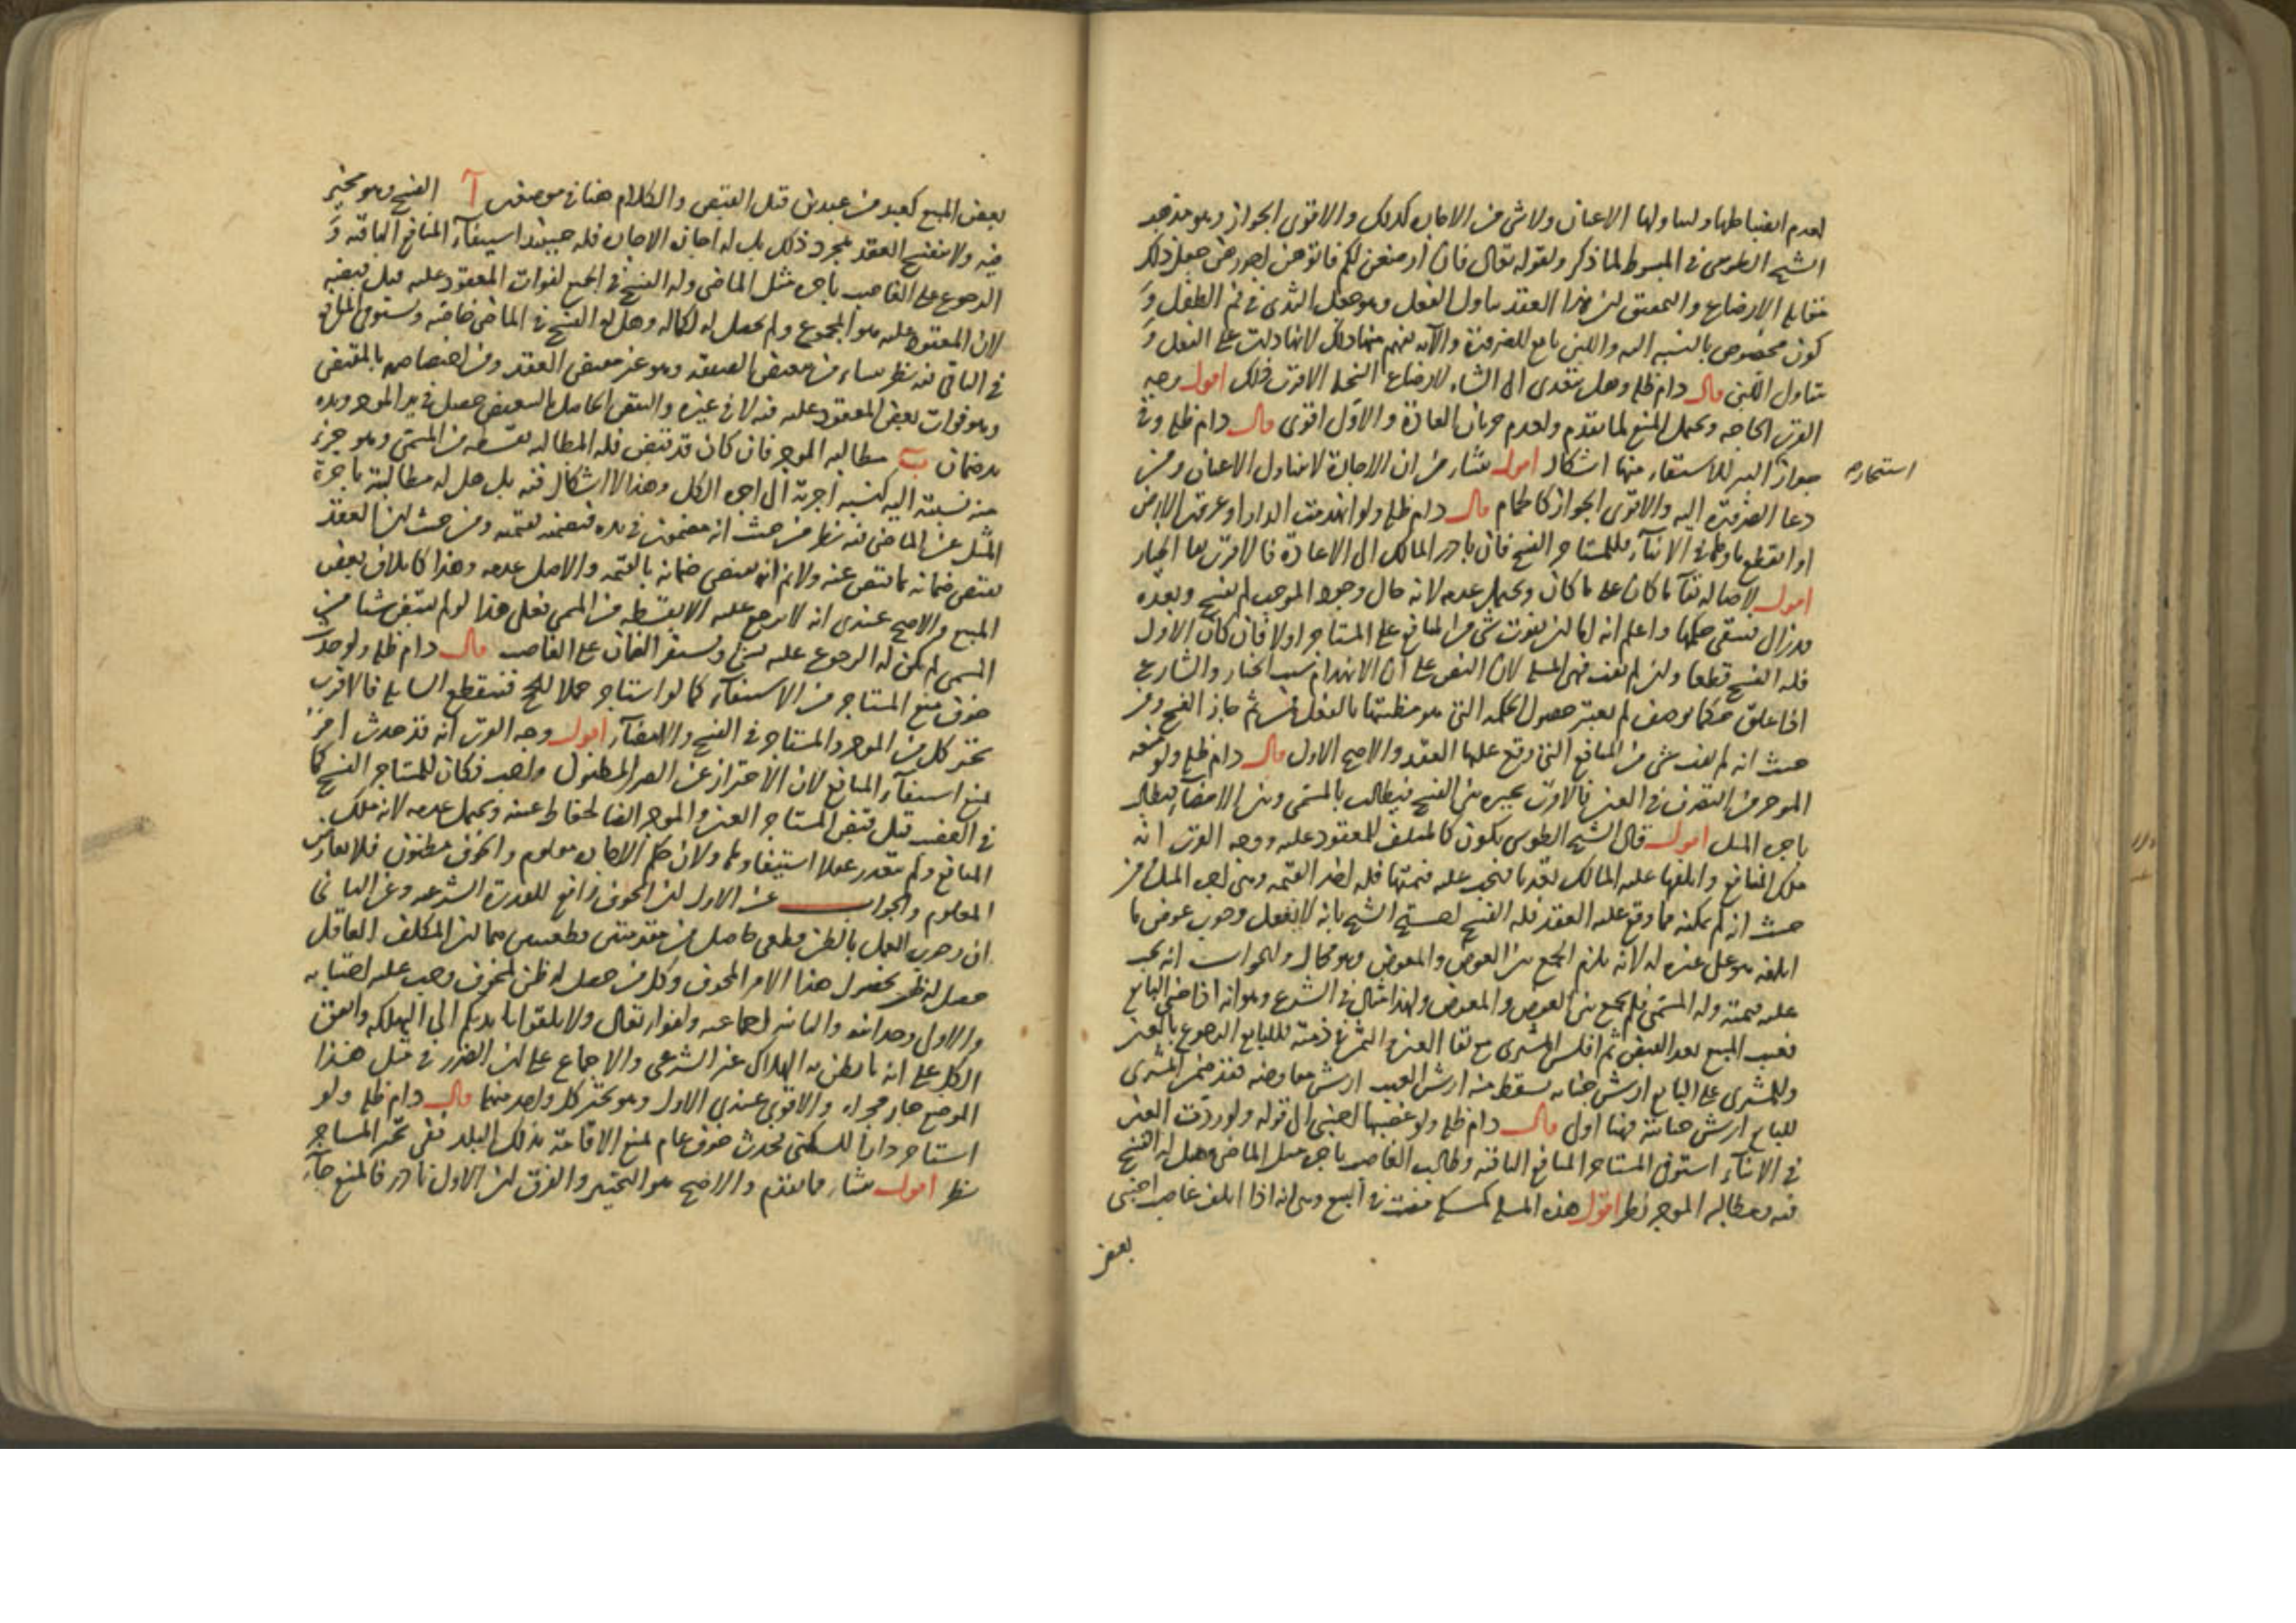 لعدم انضباطها ولتناولها الاعيان ولا شئ من الاجارة كذلك والاقوى الجواز وهو مذهب
الشيخ الطوسى فى المبسوط لما ذكر ولقوله تعالى فان ارضعن لكم فاتوهن اجورهن جعل ذلك
مقابل الارضاع والتحقيق ان هذا العقد يتناول الفعل وهو جعل الثدى فى فم الطفل و
كون مخصوص بالنسبة اليه واللبن تابع للضرورة والآية يفهم منها ذلك لانها دلت على الفعل و
تناول اللبن قال دام ظله وهل يتعدى الى الشاة لارضاع السخلة الاقرب ذلك اقول وجه
القرب الحاجة ويحتمل المنع لما تقدم ولعدم جريان العادة والاول اقوى قال دام ظله وفى
جواز البئر للاستقاء منها اشكال اقول ينشأ من ان الاجارة لا تتناول الاعيان ومن
استيجاره
دعاء الضرورة اليه والاقوى الجواز كالحمام قال دام ظله ولو انهدمت الدار او غرقت الارض
او انقطع ماؤها فى الاثناء فللمستاجر الفسخ فان بادر المالك الى الاعادة فالاقرب بقاء الخيار
اقول لاصالة بقاء ما كان على ما كان ويحتمل عدمه لانه حال وجود الموجب لم يفسخ وبعده
قد زال فينتفى حكمها واعلم انه اما ان يفوت شئ من المنافع على المستاجر اولا فان كان الاول
فله الفسخ قطعا وان لم يفت فهى المسئلة لان النص على ان الانهدام سبب الخيار والشارع
اذا علق حكما بوصف لم يعتبر حصول الحكمة التى هو مظنتها بالفعل فمن ثم جاز الفسخ ومن
حيث انه لم يفت شئ من المنافع التى وقع عليها العقد والاصح الاول قال دام ظله ولو منعه
الموجر من التصرف فى العين فالاقرب تخييره بين الفسخ فيطالب بالمسمى وبين الامضاء فيطالب
باجرة المثل اقول قال الشيخ الطوسى يكون كالمتلف للمعقود عليه ووجه القرب انه
ملك المنافع واتلفها عليه المالك تعديا فيجب عليه قيمتها فله اخذ القيمة وهى اجرة المثل ومن
حيث انه لم يمكنه مما وقع عليه العقد فله الفسخ احتج الشيخ بانه لا يعقل وجوب عوض ما
اتلفه هو على غيره له لانه يلزم الجمع بين العوض والمعوض وهو محال والجواب انه يجب
عليه قيمته وله المسمى فلم يجمع بين العوض والمعوض ولهذا مثال فى الشرع وهو انه اذا جنى البايع
فعيب المبيع بعد القبض ثم افلس المشترى مع بقاء العين والثمن فى ذمته فللبايع الرجوع بالعين
وللمشترى على البايع ارش جنايته يسقط منه ارش العيب ارش معاوضة فقد ضمن المشترى
للبايع ارش جنايته فهنا اولى قال دام ظله ولو غصبها اجنبى الى قوله ولو ردت العين
فى الاثناء استوفى المستاجر المنافع الباقية وطالب الغاصب باجرة مثل الماضى وهل له الفسخ
فيه ومطالبة الموجر نظر اقول هذه المسئلة كمسئلة مضت فى البيع وهى انه اذا اتلف غاصب اجنبى
بعض
بعض المبيع كعبد من عبدين قبل القبض والكلام هنا فى موضعين آ الفسخ وهو مخير
فيه ولا ينفسخ العقد بمجرد ذلك بل له اجازة الاجارة فله حينئذ استيفاء المنافع الباقية و
الرجوع على الغاصب باجرة مثل الماضى وله الفسخ فى الجميع لفوات المعقود عليه قبل قبضه
لان المعقود عليه هو المجموع ولم يحصل له لكماله وهل له الفسخ فى الماضى خاصة ويستوفى المنافع
فى الباقى فيه نظر ينشاء من تبعيض الصفقة وهو غير مقتضى العقد ومن اختصاصه بالمقتضى
وهو فوات بعض المعقود عليه فيه لا فى غيره والنقص الحاصل بالتبعيض حصل فى يد الموجر ويده
يد ضمان ب مطالبة الموجر فان كان قد قبض فله المطالبة بقسطه من المسمى وهو جزء
منه نسبته اليه كنسبة اجرته الى اجرة الكل وهذا لا اشكال فيه بل هل له مطالبته باجرة
المثل عن الماضى فيه نظر من حيث انه مضمون فى يده فيضمنه بقيمته ومن حيث ان العقد
يقتضى ضمانه بما قبض عنه ولا نم انه يقتضى ضمانه بالقيمة والاصل عدمه وهذا كاتلاف بعض
المبيع والاصح عندى انه لا يرجع عليه الا بقسطه من المسمى فعلى هذا لو لم يقبض شيئا من
المسمى لم يكن له الرجوع عليه بشئ ويستقر الضمان على الغاصب قال دام ظله ولو حدث
خوف منع المستاجر من الاستيفاء كما لو استاجر جملا للحج فينقطع السابلة فالاقرب
تخير كل من الموجر والمستاجر فى الفسخ والامضاء اقول وجه القرب انه قد حدث امر
يمنع استيفاء المنافع لان الاحتراز عن الضرر المظنون واجب فكان للمستاجر الفسخ كما
فى الغصب قبل قبض المستاجر العين وللموجر ايضا لحفاظ عينه ويحتمل عدمه لانه ملك
المنافع ولم يتعذر عقلا استيفاؤها ولان حكم الاجارة معلوم والخوف مظنون فلا يعارض
المعلوم والجواب عن الاول ان الخوف رافع للقدرة الشرعية وعن الثانى
ان وجوب العمل بالظن قطعى حاصل من مقدمتين قطعيتين هما ان المكلف العاقل
حصل له ظن بحصول هذا الامر المخوف وكل من حصل له ظن المخوف وجب عليه اجتنابه
والاول وجدانية والثانية اجماعية ولقوله تعالى ولا تلقوا بايديكم الى التهلكة واتفق
الكل على انه ما يظن به الهلاك غير الشرعى والاجماع على ان الضرر فى مثل هذا
الموضع جار مجراه والاقوى عندى الاول وهو تخير كل واحد منهما قال دام ظله ولو
استاجر دارا للسكنى فحدث خوف عام لمنع الاقامة بذلك البلد ففى تخير المستاجر
نظر اقول ينشأ مما تقدم والاصح هو التخيير والفرق ان الاول نادر فالمنع جاء